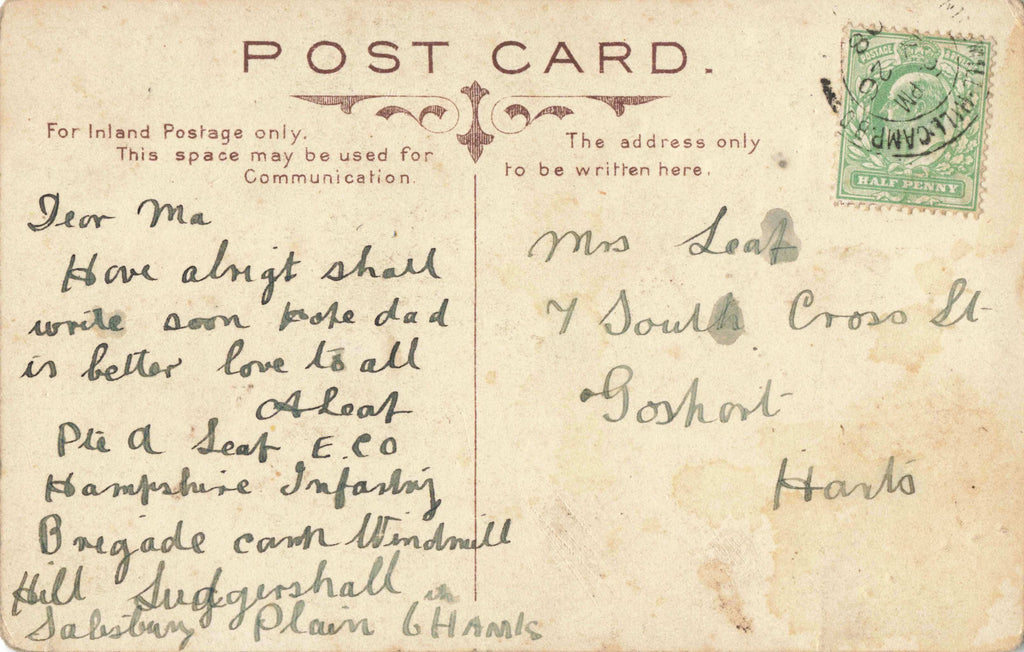 POST CARD.
For Inland Postage only.
This space may be used for
Communication.
The address only
to be written here.
POSTAGE
HALF PENNY
PM
26
08
Dear Ma
Have alrigt shall
write soon hope dad
is better love to all
A Leaf
Pte A Leaf E.CO
Hampshire Infantry
Brigade camp Windmill
Hill Luggershall
Salesbury Plain 6th Hants
Mrs Leaf
7 South Cross St
Gosport
Hants